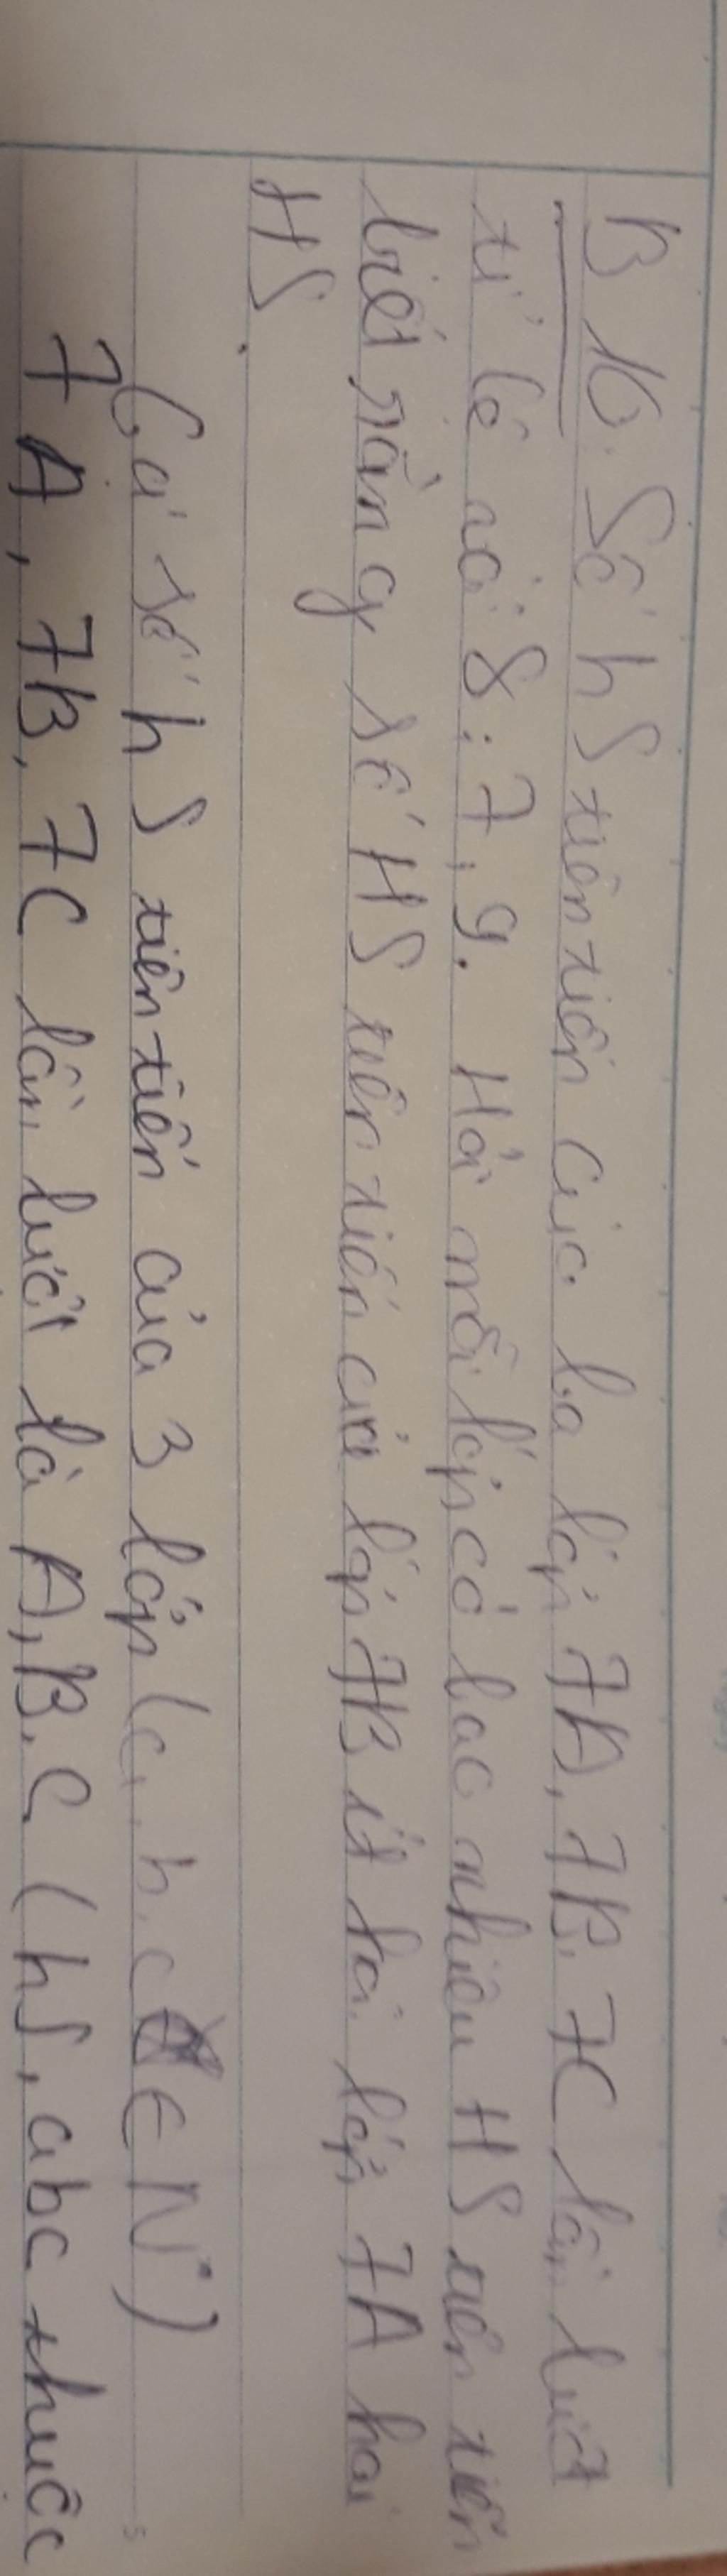 B 10. Số hS tiên tiến của ba lớp 7A, 7B, 7C lần lượt
tỉ lệ với 8; 7; 9. Hỏi mỗi lớp có bao nhiêu HS tiên tiến
biết rằng số HS tiên tiến của lớp 7B ít hơn lớp 7A hai
HS.
số hS tiên tiến của 3 lớp (a, b, c ∈ N*)
7A, 7B, 7C lần lượt là A, B, C (hS, abc thuộc